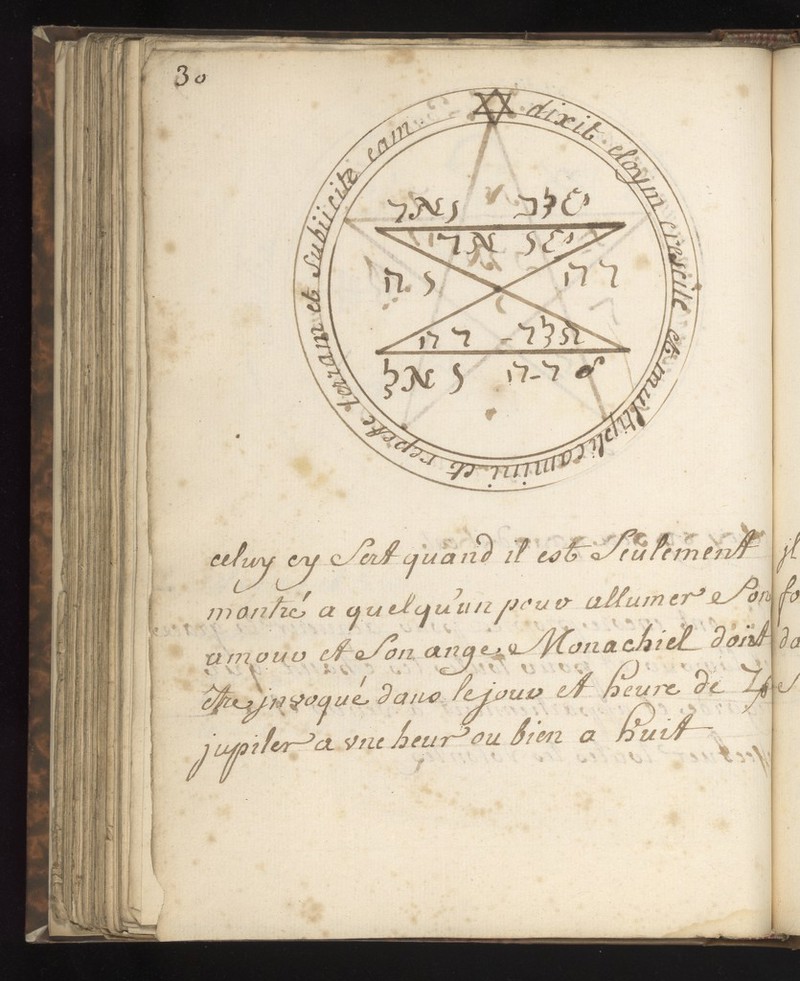 30
dixit eloym crescite et multiplicamini et repete terram et subiicite eam
ואר
ואר
ה
רה
רה
celuy cy Sert quand il est Seulement
montré a quelqu'un pouv allumer Son
amouv et Son ange Monachiel doit
être jnvoqué dans le jouv et heure de
jupiter a vne heur ou bien a huit